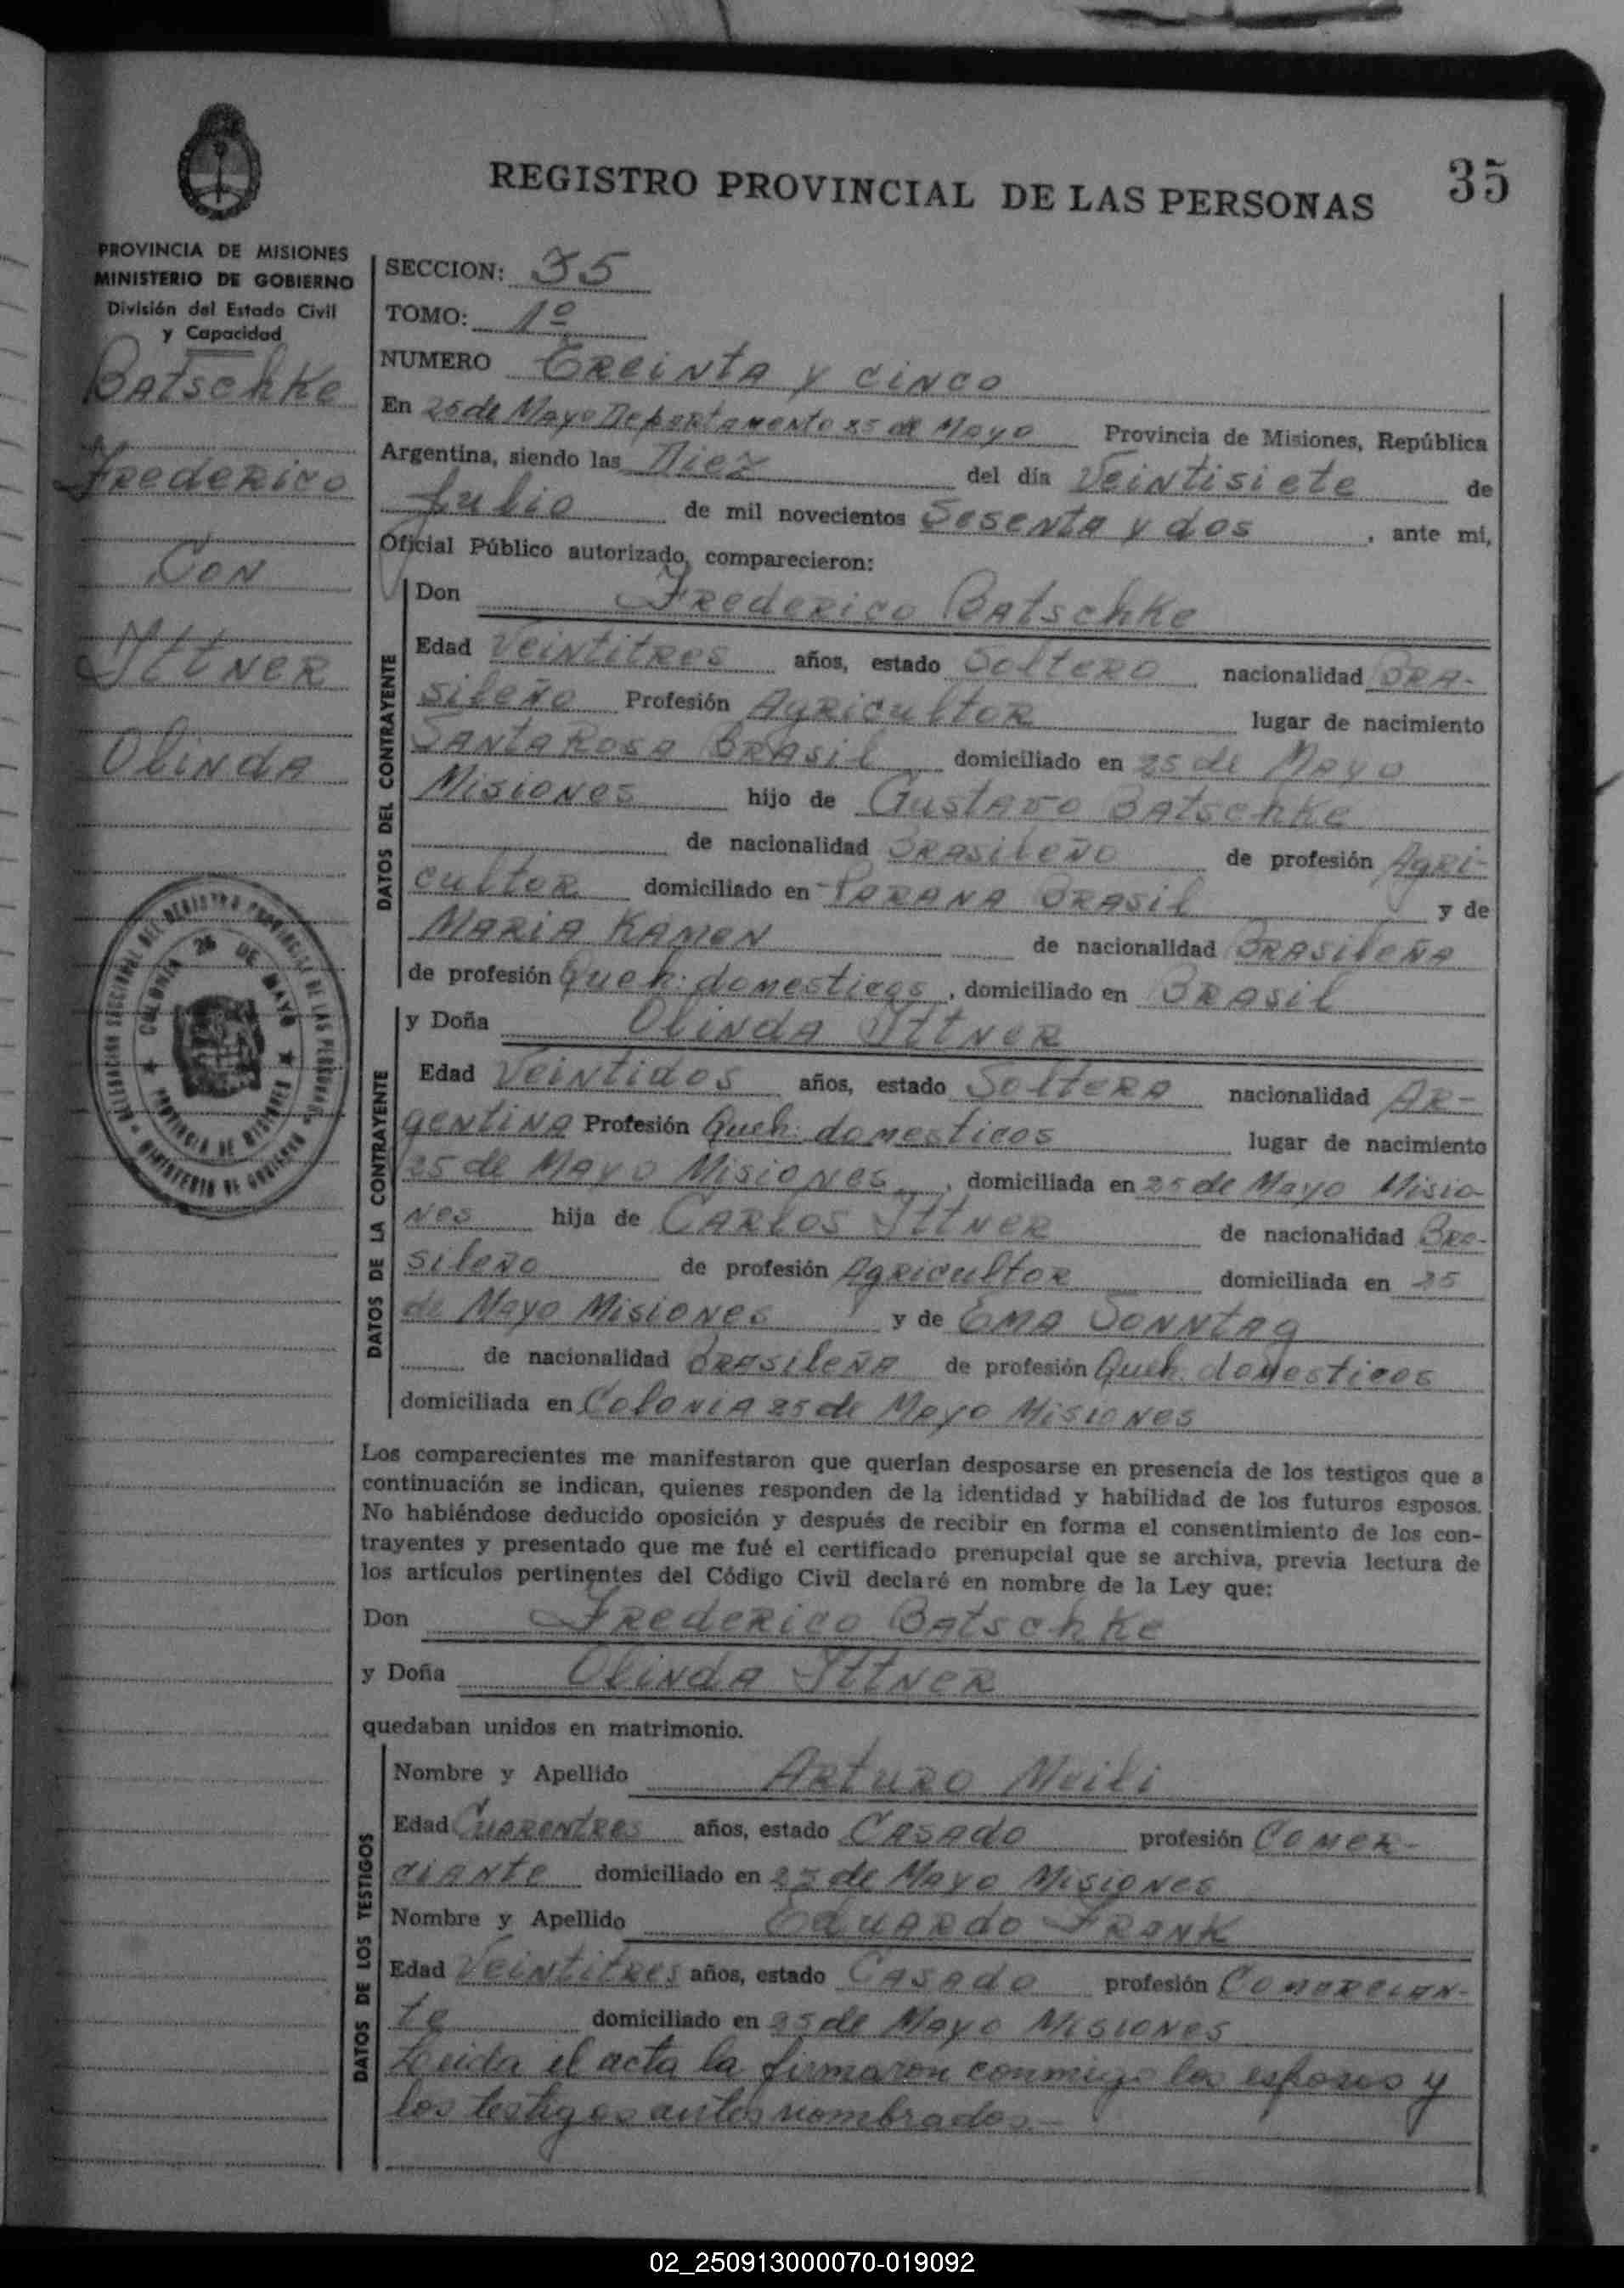 REGISTRO PROVINCIAL DE LAS PERSONAS 35
PROVINCIA DE MISIONES
MINISTERIO DE GOBIERNO
División del Estado Civil
y Capacidad
Batschke
Frederico
Con
Ittner
Olinda
DELEGACION SECCIONAL DEL REGISTRO PROVINCIAL DE LAS PERSONAS
COLONIA 25 DE MAYO
PROVINCIA DE MISIONES
MINISTERIO DE GOBIERNO
SECCION: 35
TOMO: 1º
NUMERO Treinta y cinco
En 25 de Mayo Departamento 25 de Mayo Provincia de Misiones, República
Argentina, siendo las Diez del día Veintisiete de
Julio de mil novecientos Sesenta y dos, ante mí,
Oficial Público autorizado, comparecieron:
DATOS DEL CONTRAYENTE
Don Frederico Batschke
Edad Veintitres años, estado Soltero nacionalidad Bra-
sileño Profesión Agricultor lugar de nacimiento
Santa Rosa Brasil domiciliado en 25 de Mayo
Misiones hijo de Gustavo Batschke
de nacionalidad Brasileño de profesión Agri-
cultor domiciliado en Parana Brasil y de
Maria Kamen de nacionalidad Brasileña
de profesión Queh: domesticos, domiciliado en Brasil
DATOS DE LA CONTRAYENTE
y Doña Olinda Ittner
Edad Veintidos años, estado Soltera nacionalidad Ar-
gentina Profesión Queh: domesticos lugar de nacimiento
25 de Mayo Misiones, domiciliada en 25 de Mayo Misio-
nes hija de Carlos Ittner de nacionalidad Bra-
sileño de profesión Agricultor domiciliada en 25
de Mayo Misiones y de Ema Sonntag
de nacionalidad Brasileña de profesión Queh. domesticos
domiciliada en Colonia 25 de Mayo Misiones
Los comparecientes me manifestaron que querían desposarse en presencia de los testigos que a
continuación se indican, quienes responden de la identidad y habilidad de los futuros esposos.
No habiéndose deducido oposición y después de recibir en forma el consentimiento de los con-
trayentes y presentado que me fué el certificado prenupcial que se archiva, previa lectura de
los artículos pertinentes del Código Civil declaré en nombre de la Ley que:
Don Frederico Batschke
y Doña Olinda Ittner
quedaban unidos en matrimonio.
DATOS DE LOS TESTIGOS
Nombre y Apellido Arturo Meili
Edad Cuarentres años, estado Casado profesión Comer-
ciante domiciliado en 25 de Mayo Misiones
Nombre y Apellido Eduardo Frank
Edad Veintitres años, estado Casado profesión Comercian-
te domiciliado en 25 de Mayo Misiones
Leida el acta la firmaron conmigo los esposos y
los testigos antes nombrados.-
02_250913000070-019092